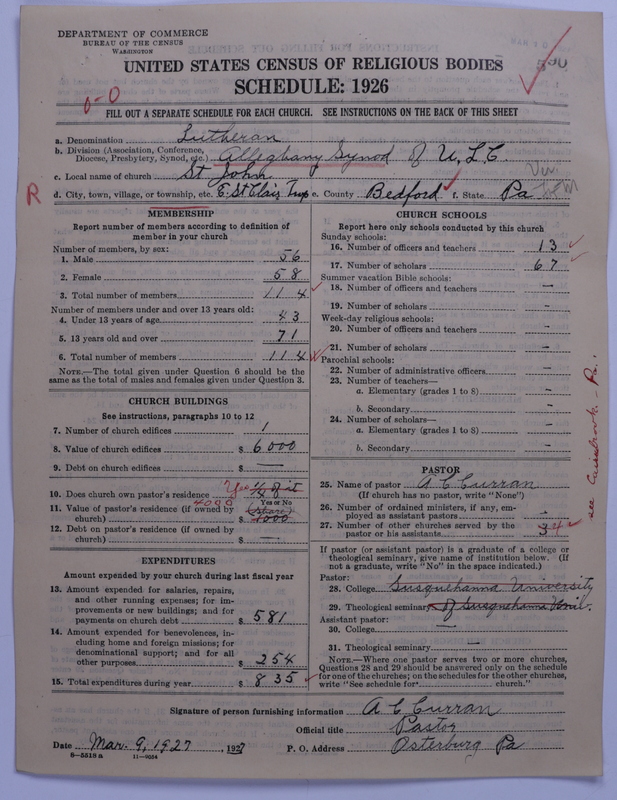 DEPARTMENT OF COMMERCE
BUREAU OF THE CENSUS
WASHINGTON
UNITED STATES CENSUS OF RELIGIOUS BODIES
SCHEDULE: 1926
0-0
FILL OUT A SEPARATE SCHEDULE FOR EACH CHURCH. SEE INSTRUCTIONS ON THE BACK OF THIS SHEET
a. Denomination Lutheran
b. Division (Association, Conference, Diocese, Presbytery, Synod, etc.) Alleghany Synod of U, L, C.
c. Local name of church St John
R
d. City, town, village, or township, etc. E. St Clair Twp e. County Bedford f. State Pa
MEMBERSHIP
Report number of members according to definition of member in your church
Number of members, by sex:
1. Male 56
2. Female 58
3. Total number of members 114
Number of members under and over 13 years old:
4. Under 13 years of age 43
5. 13 years old and over 71
6. Total number of members 114
NOTE.—The total given under Question 6 should be the same as the total of males and females given under Question 3.
CHURCH BUILDINGS
See instructions, paragraphs 10 to 12
7. Number of church edifices 1
8. Value of church edifices $ 6000
9. Debt on church edifices $ —
10. Does church own pastor's residence Yes ¼ of it
Yes or No
11. Value of pastor's residence (if owned by church) 4000 (share) $ 1000
12. Debt on pastor's residence (if owned by church) $ —
EXPENDITURES
Amount expended by your church during last fiscal year
13. Amount expended for salaries, repairs, and other running expenses; for improvements or new buildings; and for payments on church debt $ 581
14. Amount expended for benevolences, including home and foreign missions; for denominational support; and for all other purposes $ 254
15. Total expenditures during year $ 835
CHURCH SCHOOLS
Report here only schools conducted by this church
Sunday schools:
16. Number of officers and teachers 13
17. Number of scholars 67
Summer vacation Bible schools:
18. Number of officers and teachers —
19. Number of scholars —
Week-day religious schools:
20. Number of officers and teachers —
21. Number of scholars —
Parochial schools:
22. Number of administrative officers —
23. Number of teachers—
a. Elementary (grades 1 to 8) —
b. Secondary —
24. Number of scholars—
a. Elementary (grades 1 to 8) —
b. Secondary —
PASTOR
25. Name of pastor A C Curran
(If church has no pastor, write "None")
26. Number of ordained ministers, if any, employed as assistant pastors -
27. Number of other churches served by the pastor or his assistants 3 4
If pastor (or assistant pastor) is a graduate of a college or theological seminary, give name of institution below. (If not a graduate, write "No" in the space indicated.)
Pastor:
28. College Susquehanna University
29. Theological seminary of Susquehanna Univ.
Assistant pastor:
30. College —
31. Theological seminary —
NOTE.—Where one pastor serves two or more churches, Questions 28 and 29 should be answered only on the schedule for one of the churches; on the schedules for the other churches, write "See schedule for church."
Signature of person furnishing information A C Curran
Official title Pastor
Date Mar. 9, 1927, 1927 P. O. Address Osterburg Pa
8—5518 a 11—9654